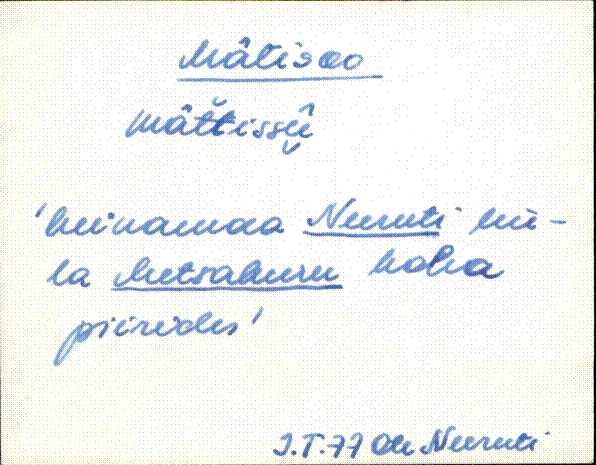 Mâtisoo
mât̆tissû̬
'heinamaa Neeruti kü-
la Metsakuru koha
piirides'
J.T.77 Ote Neeruti